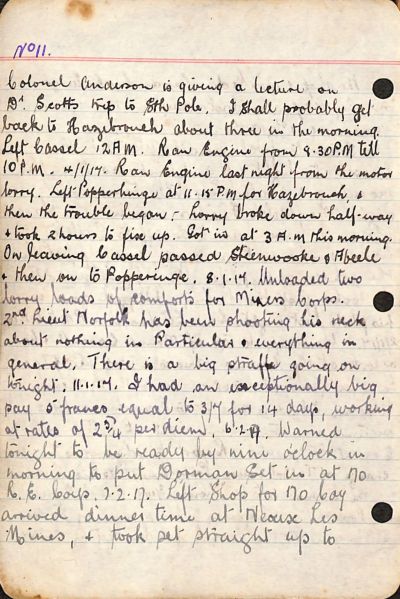 No 11.
Colonel Anderson is giving a lecture on
Dr. Scotts trip to Sth Pole. I shall probably get
back to Hazebrouch about three in the morning.
Left Cassel 12 AM. Ran Engine from 8.30 PM till
10 P.M. 4/1/17. Ran Engine last night from the motor
lorry. Left Popperhinge at 11.15 P.M for Hazebrouch, &
then the trouble began :- Lorry broke down half-way
& took 2 hours to fix up. Got in at 3 A.M this morning.
On leaving Cassel passed Steenwooke & Abeele
& then on to Popperinge. 8.1.17. Unloaded two
lorry loads of comforts for Miners Corps.
2nd Lieut Norfolk has been shooting his neck
about nothing in Particular & everything in
general. There is a big straffe going on
tonight. 11.1.17. I had an exceptionally big
pay 5 francs equal to 3/7 for 14 days, working
at rates of 2 3/4 per diem. 6.2.17. Warned
tonight to be ready by nine oclock in
morning to put Dorman Set in at 170
R.E. Coys. 7.2.17. Left Shop for 170 Coy
arrived dinner time at Neoux Les
Mines, & took set straight up to